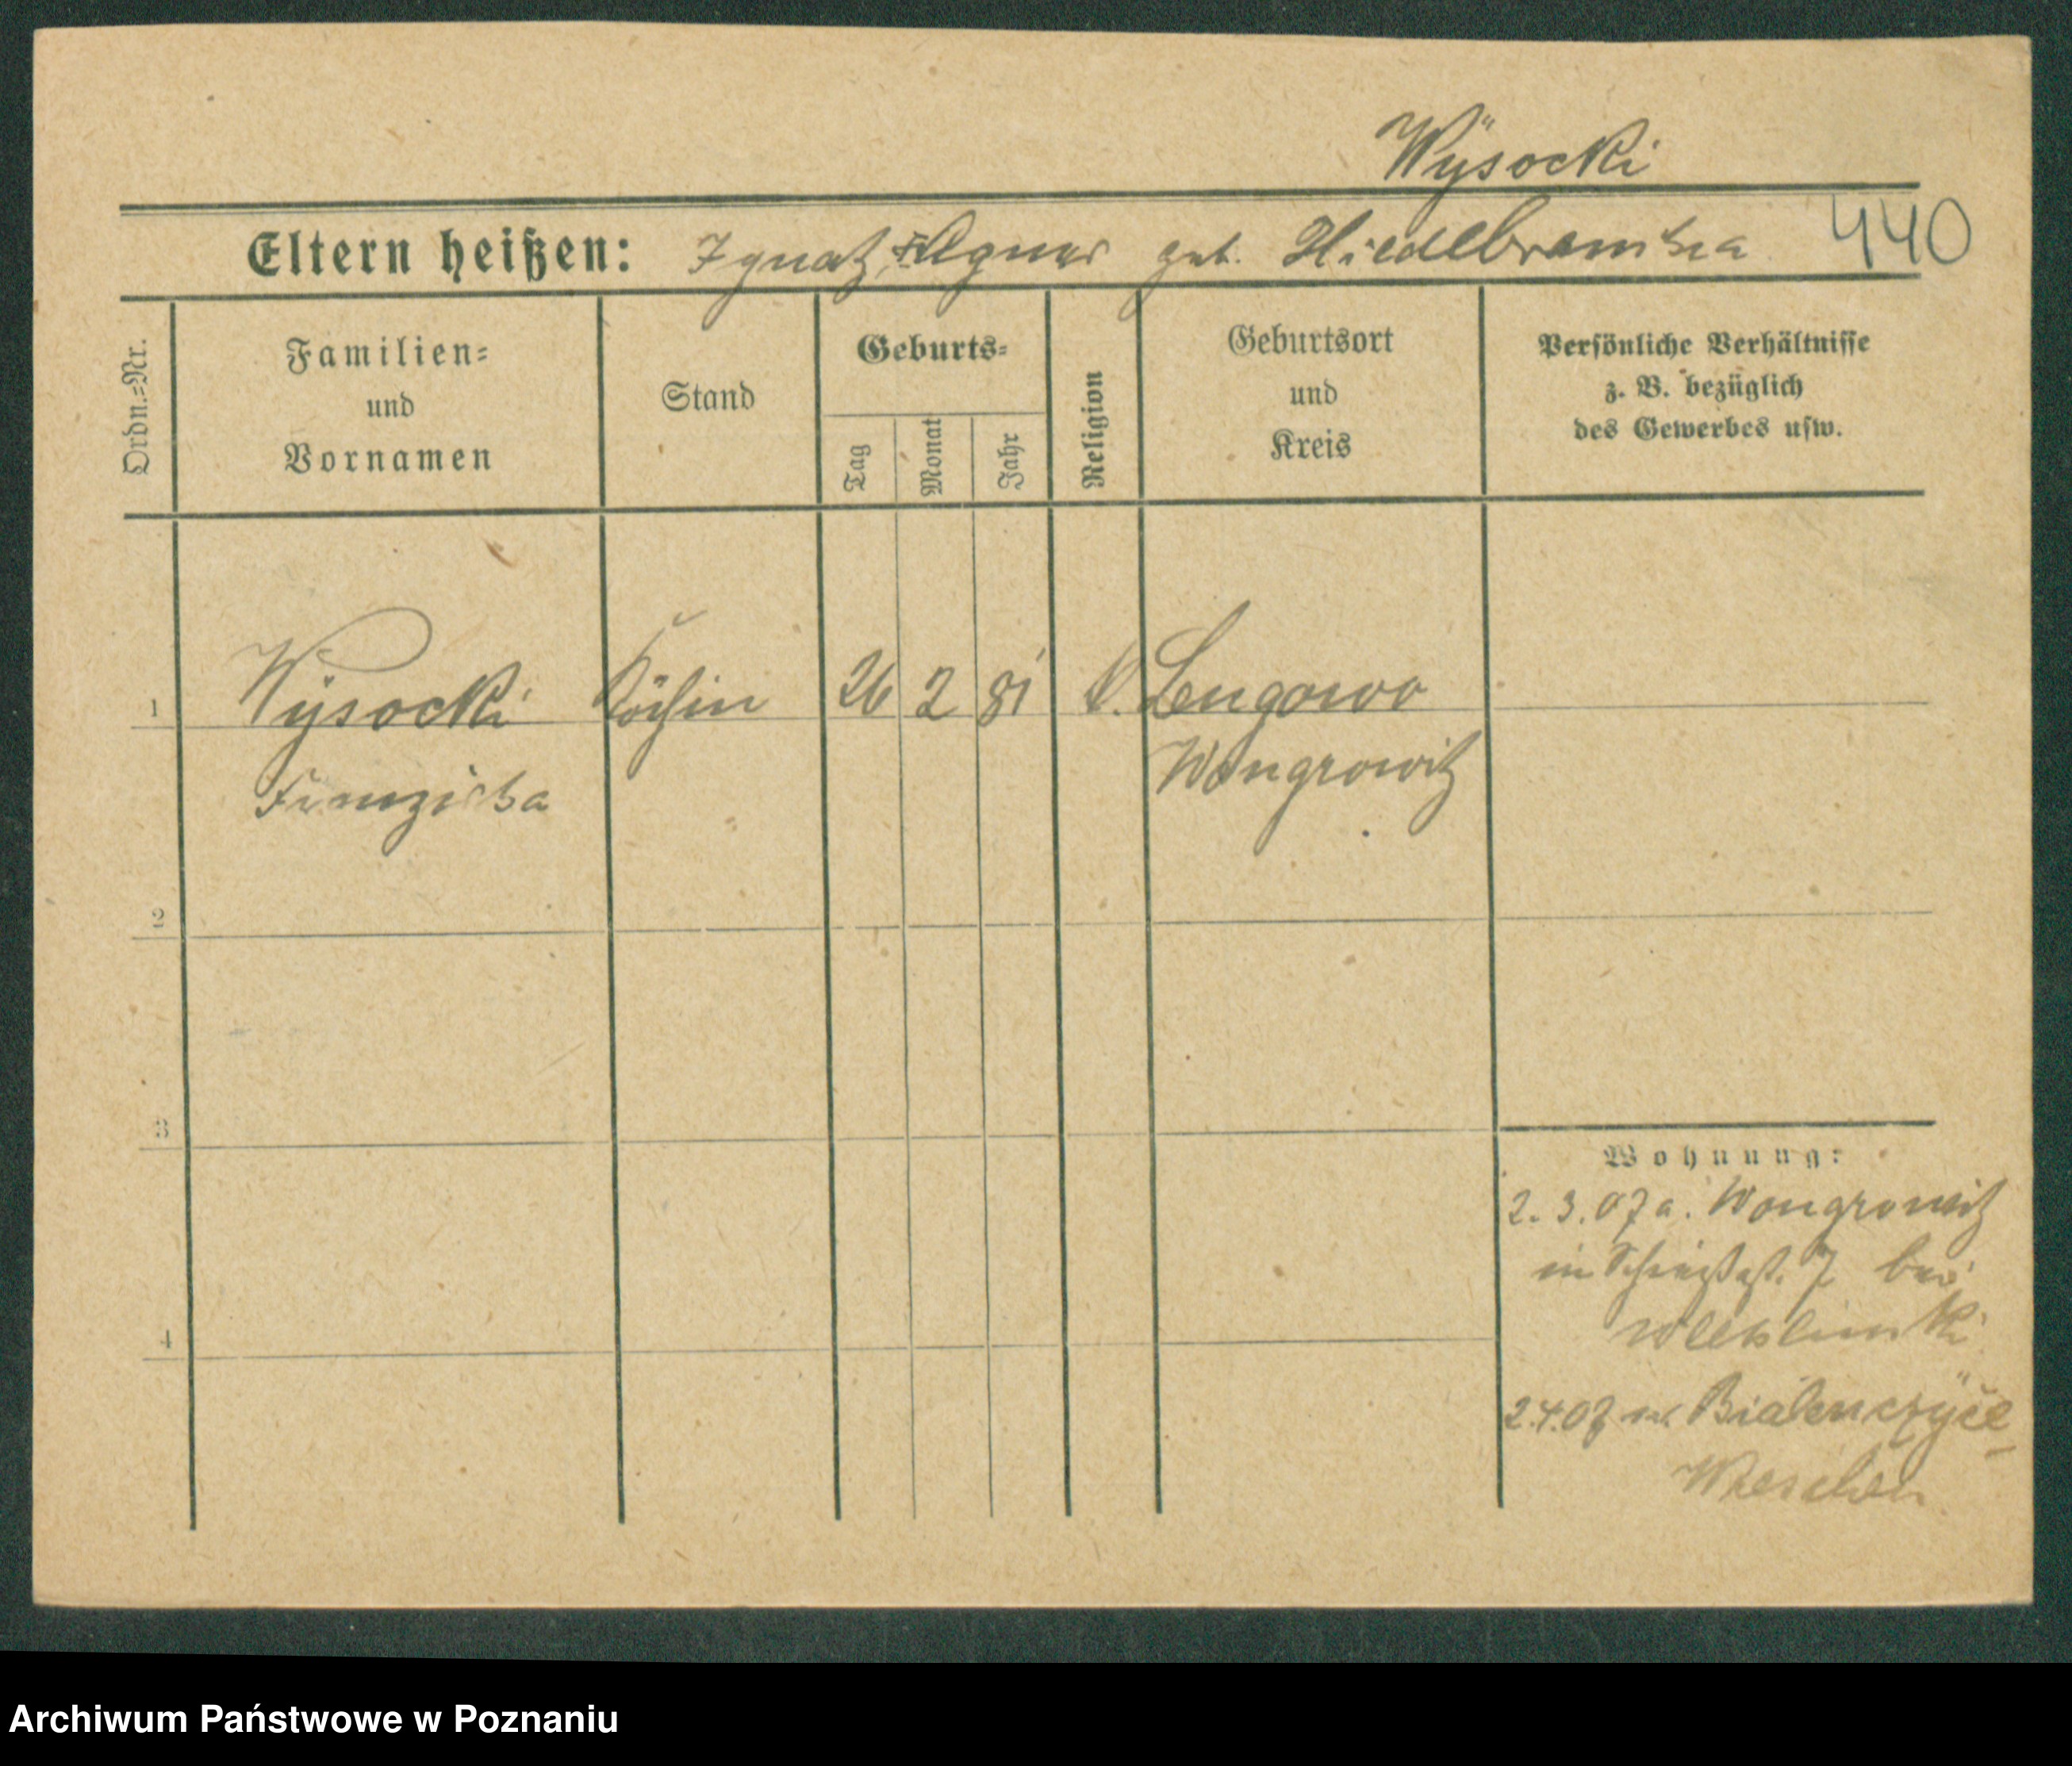 Wÿsocki
Eltern heißen: Ignatz, Agnes geb. Hiedelbranska 440
Ordn.=Nr.
Familien=
und
Vornamen
Stand
Geburts=
Tag
Monat
Jahr
Religion
Geburtsort
und
Kreis
Persönliche Verhältnisse
z. B. bezüglich
des Gewerbes usw.
1 Wÿsocki Köchin 26 2 81 k. Lengowo
Franziska Wongrowitz
2
3
4
Wohnung:
2. 3. 07 a. Wongrowitz
in 7 bei
2.4.07 n. Bialenczÿce
Wreschen
Archiwum Państwowe w Poznaniu